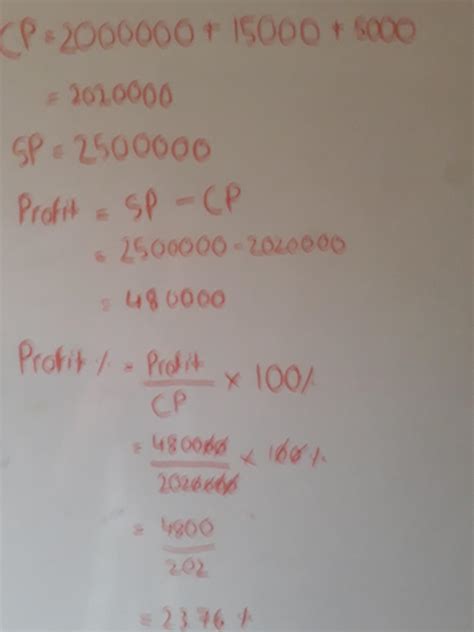 CP = 2000000 + 15000 + 5000
= 2020000
SP = 2500000
Profit = SP - CP
= 2500000 - 2020000
= 480000
Profit % = Profit/CP × 100%
= 480000/2020000 × 100%
= 4800/202
= 23.76 %